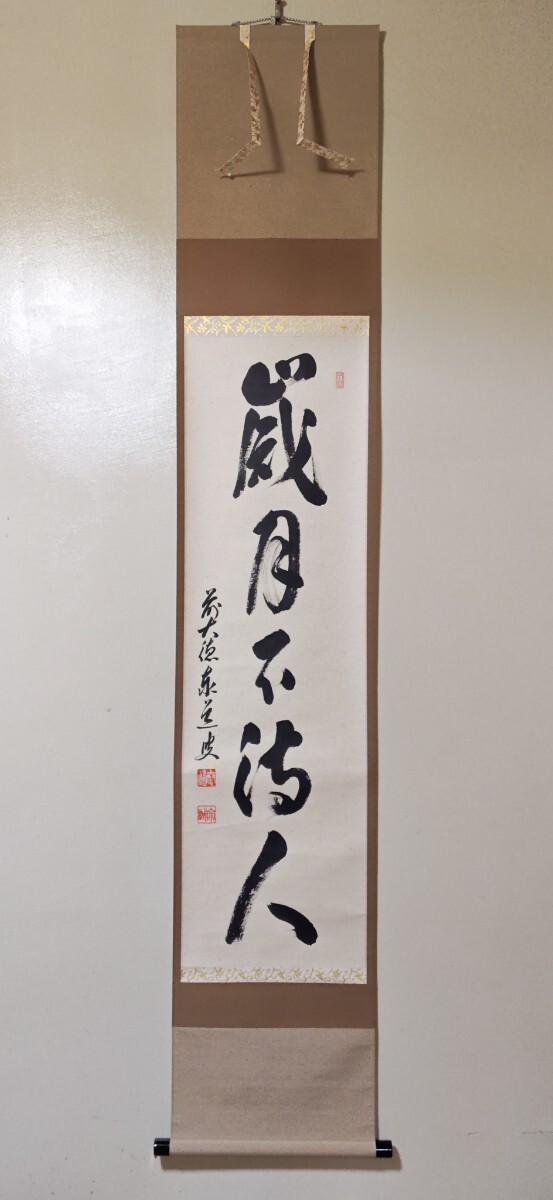 歳月不待人
前大徳泰道叟